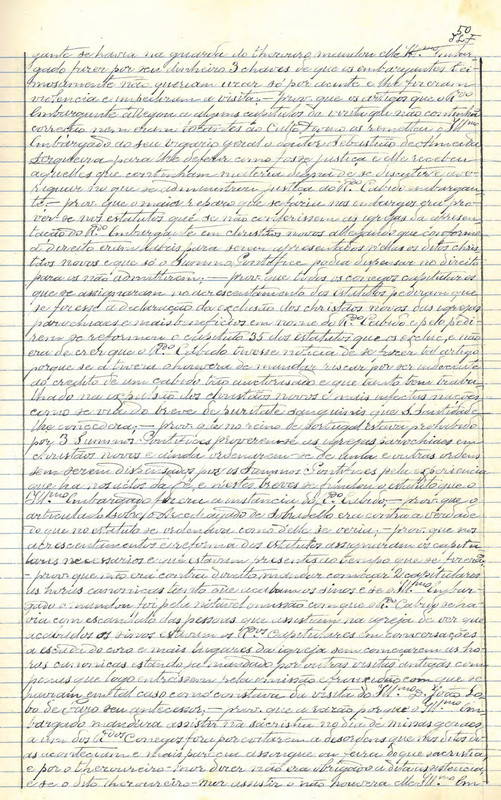 50
327
gante se havia na guarda do thezouro mandou elle Ill.mo Embar-
gado fazer por seu dinheiro 3 chaves de que os embargantes tei-
mosamente não queriam usar só por acinte e lhe fizeram
violencia e impediram a visita; – prov. que os artigos que o R.do
Embargante allegou a alguns capitulos da visita que não continha
correcção nem eram tocantes ao Culto Divino os remetteu o Ill.mo
Embargado ao seu vigario geral o doutor Sebastião de Almeida
Serqueira para lhe deferir como fosse justiça e elle recebeu
aquelles que continham materia digna de se discutir e a ou-
riguar no que se administrou justiça ao R.do Cabido embargan-
te – prov. que o maior reparo que se fazia nos embargos era pro-
ver-se nos estatutos que se não conferissem as igrejas da apresen-
tação do R.do Embargante em christãos novos allegando que conforme
a direito eram habeis para serem apresentados n'ellas os ditos chris-
tãos novos e que só o Summo Pontifice podia dispensar no direito
para os não admittirem; – prov. que todos os conegos capitulares
que se assignaram no acrescentamento dos estatutos pediram que
se fizesse a declaração da exclusão dos christãos novos das igrejas
parochiaes e mais beneficios em nome do R.do Cabido e pelo pedi-
rem se reformou o capitulo 35 dos estatutos que os exclue, e não
era de crer que o R.do Cabido tivesse noticia de se fazer tal artigo
porque se a tivera o houvera de mandar riscar por ser indecente
ao credito de um cabido tão auctorisado e que tanto tem traba-
lhado na expulsão dos christãos novos e mais infectas nações
como se via do breve de puritate sanguinis que S. Santidade
lhe concedera; – prov. que no reino de Portugal estava prohibido
por 3 Summos Pontifices proverem-se as igrejas parochiaes em
christãos novos e ainda ordenarem-se de Missa e outras ordens
sem serem dispensados pelos Summos Pontifices pela experiencia
que ha nos vicios da fé, e nestes breves se fundou o estatuto que o
Ill.mo Embargado fizera a instancia do R.do Cabido; – prov. que o
articulado sobre o Arcediagado de Labruja era contra a verdade
do que no estatuto se ordenava como d'elle se veria; – prov. que nos
acrescentamentos e reforma dos estatutos assignaram os capitu-
lares necessarios e que estavam presentes ao tempo que se fizeram
– prov. que não era contra direito mandar começar 2 capitulares
as horas canonicas tanto que acabam os sinos e se o Ill.mo Embar-
gado o mandou foi pela notavel omissão com que o R.do Cabido se ha-
via com escandalo das pessoas que assistiam na igreja de ver que
acabados os sinos estavam os R.dos capitulares em conversações
á escada do coro e mais lugares da igreja sem começarem as ho-
ras canonicas estando já mandado por outras visitas antigas com
penas que logo entrassem pela omissão e frouxidão com que se
haviam em tal caso como constava da visita do Ill.mo S. João Lo-
bo de Faro seu antecessor; – prov. que a razão porque o Ill.mo Em-
bargado mandara assistir na sacristia no dia de missas geraes
a um dos R.dos Conegos fora por evitarem a desordens que nos ditos di-
as aconteciam e mais parecia açougue ou feira do que sacristia,
e por o thezoureiro-mor dizer não era obrigado a dita assistencia,
e se o dito thezoureiro-mor assistir o não houvera elle Ill.mo Em